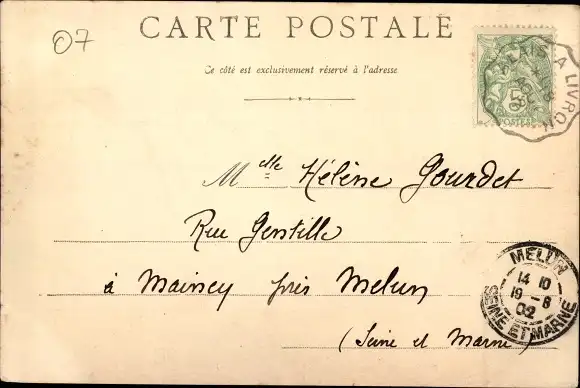 07
CARTE POSTALE
Ce côté est exclusivement réservé à l'adresse
5c
POSTES
ALAIS A LIVRON
Melle Hélène Gourdet
Rue Gentille
à Maincy près Melun
(Seine et Marne)
MELUN
14 10
19 - 8
02
SEINE ET MARNE